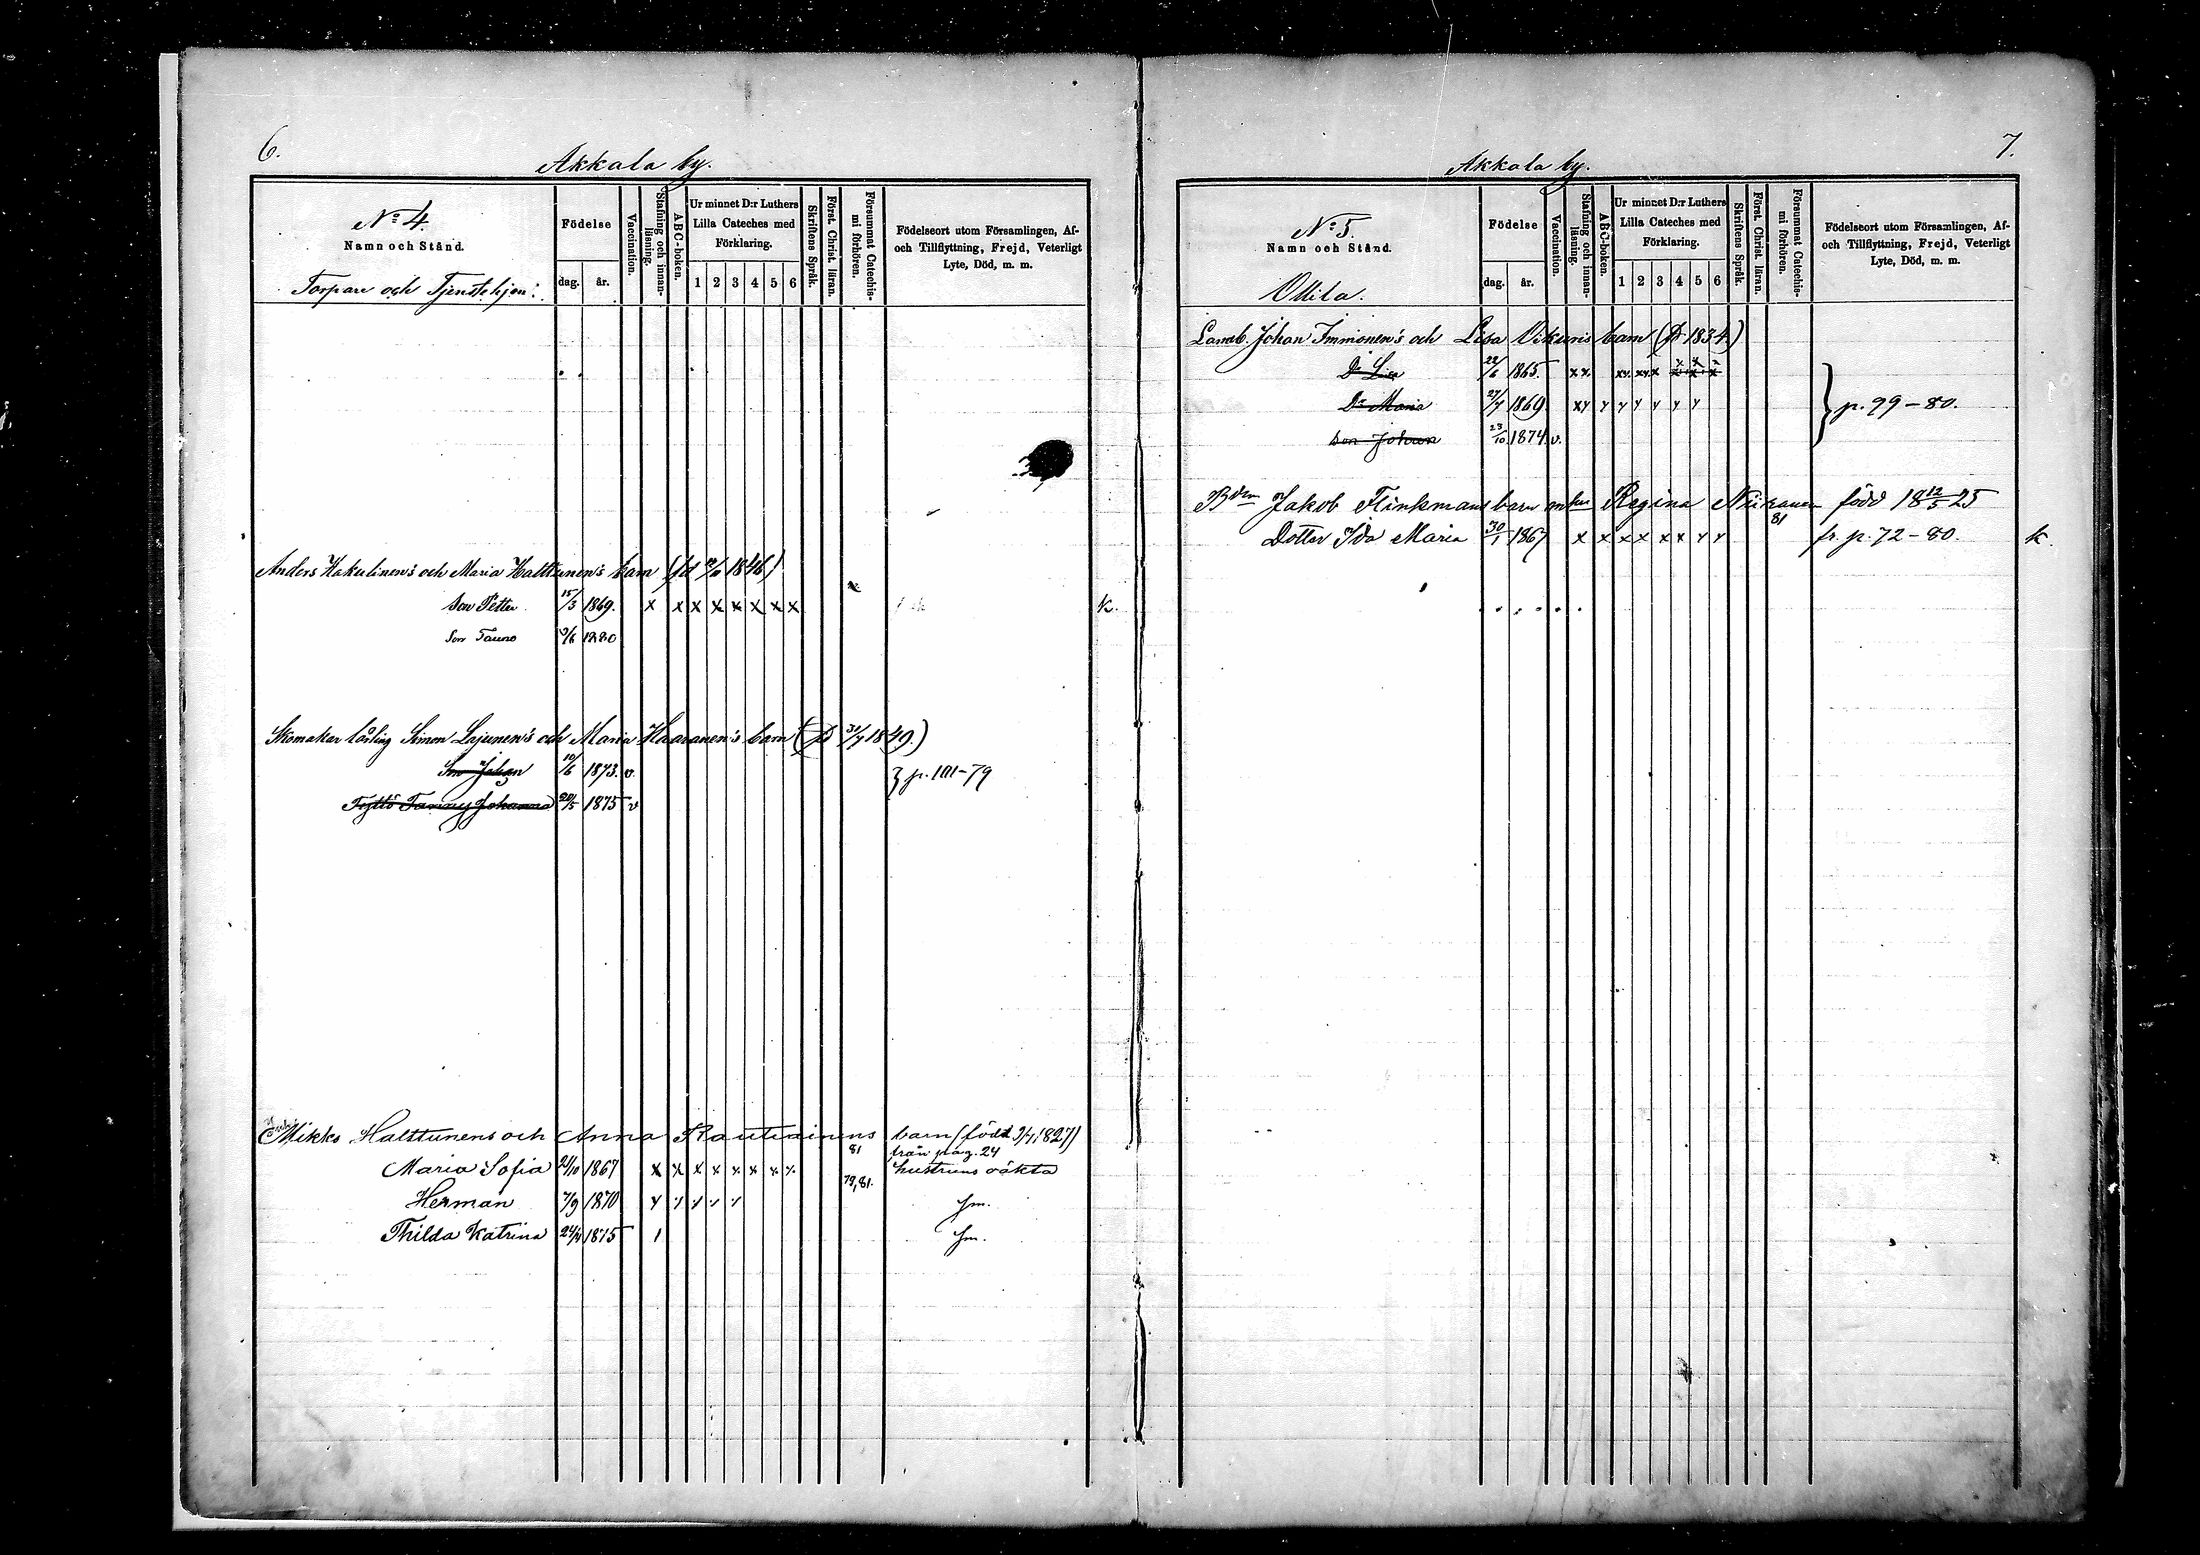 6.
Akkala by.
No 4.
Namn och Stånd.
Torpare och Tjenstehjon:
Födelse
dag.
år.
Vaccination.
Stafning och innan-
läsning.
ABC-boken.
Ur minnet D:r Luthers
Lilla Cateches med
Förklaring.
1 2 3 4 5 6
Skriftens Språk.
Först. Christ. läran.
Försummat Catechis-
mi förhören.
Födelseort utom Församlingen, Af-
och Tillflyttning, Frejd, Veterligt
Lyte, Död, m. m.
Anders Hakulinen's och Maria Halttunen's barn 1846)
Son Petter 15/3 1869. x x x x x x x x k.
Son Tauno 1880
Skomakar lärling Simon Lajunen's och Maria Haaranen's barn 1849.)
Son Johan 10/6 1873. v.
} p. 101-79
Tyttö Fanny Johanna 20/5 1875 v
Mikko Halttunens och Anna Rautiainens barn (född 3/4 1827)
81 från pag. 24
Maria Sofia 1867 x x x x x x x x hustruns oäkta
79, 81.
Herman 7/9 1870 Sm.
Thilda Katrina 1875 Sm.
7.
Akkala by.
No 5.
Namn och Stånd.
Ollila.
Födelse
dag.
år.
Vaccination.
Stafning och innan-
läsning.
ABC-boken.
Ur minnet D:r Luthers
Lilla Cateches med
Förklaring.
1 2 3 4 5 6
Skriftens Språk.
Först. Christ. läran.
Försummat Catechis-
mi förhören.
Födelseort utom Församlingen, Af-
och Tillflyttning, Frejd, Veterligt
Lyte, Död, m. m.
Landb. Johan Immonen's och Lisa barn 1834)
Dr Lisa 22/6 1865.
Dr Maria 1869. } p. 99-80.
Son Johan 23/10 1874 v.
Jakob Flinkmans barn Regina född 18 12/5 25
81
Dotter Ida Maria 30/1 1867 x x x x x x x x fr. p. 72-80. k.